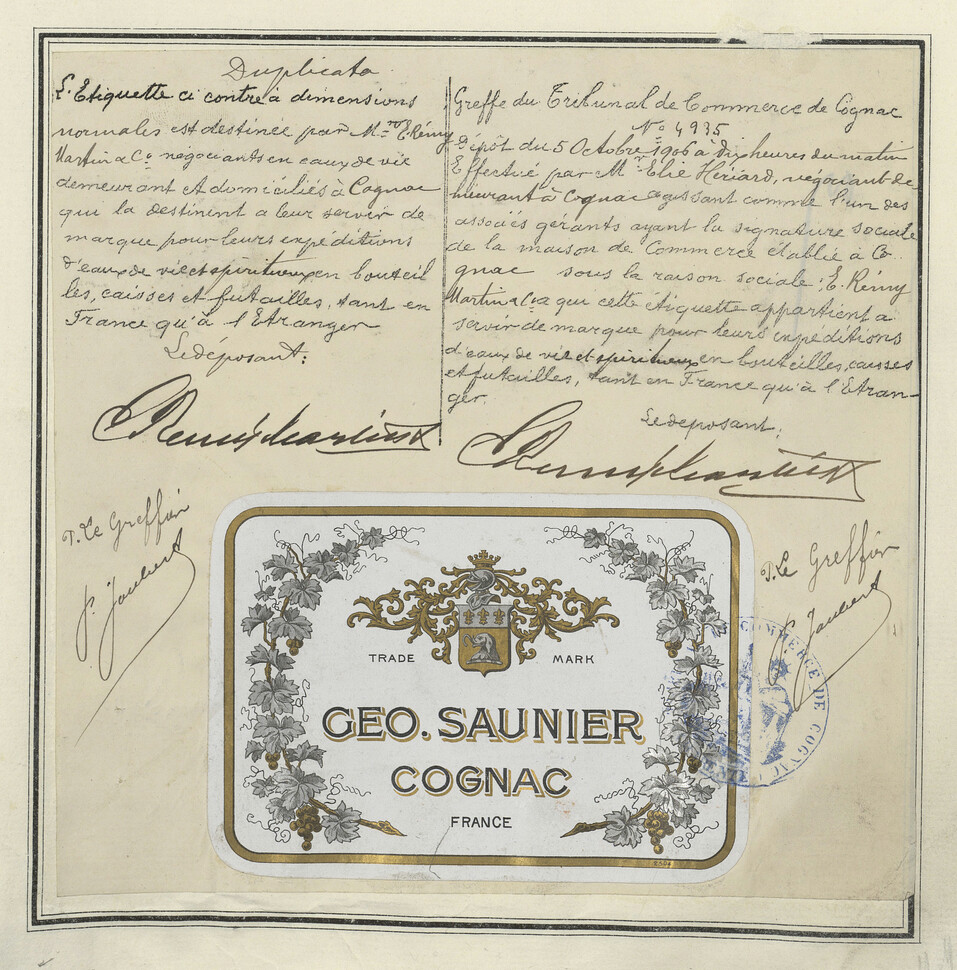 Duplicata
L'Etiquette ci contre à dimensions
normales est destinée par M.rs E. Rémy
Martin & Co. négociants en eaux de vie
demeurant & domiciliés à Cognac
qui la destinent a leur servir de
marque pour leurs expéditions
d'eaux de vie et spiritueux en bouteil
les, caisses et futailles, tant en
France qu'à l'Etranger
Le déposant:
E Remy Martin & Co
P. Le Greffier
P. Joubert
Greffe du Tribunal de Commerce de Cognac
No 4935
Dépôt du 5 Octobre 1906 à dix heures du matin
Effectué par Mr. Elie Hériard, négociant de-
meurant à Cognac agissant comme l'un des
associés gérants ayant la signature sociale
de la maison de Commerce établie à Co-
gnac sous la raison sociale: E. Rémy
Martin & Co qui cette étiquette appartient a
servir de marque pour leurs expéditions
d'eaux de vie et spiritueux en bouteilles, caisses
et futailles, tant en France qu'à l'Etran-
ger.
Le déposant:
E Remy Martin & Co
P. Le Greffier
P. Joubert
TRADE MARK
GEO. SAUNIER
COGNAC
FRANCE
COMMERCE DE COGNAC